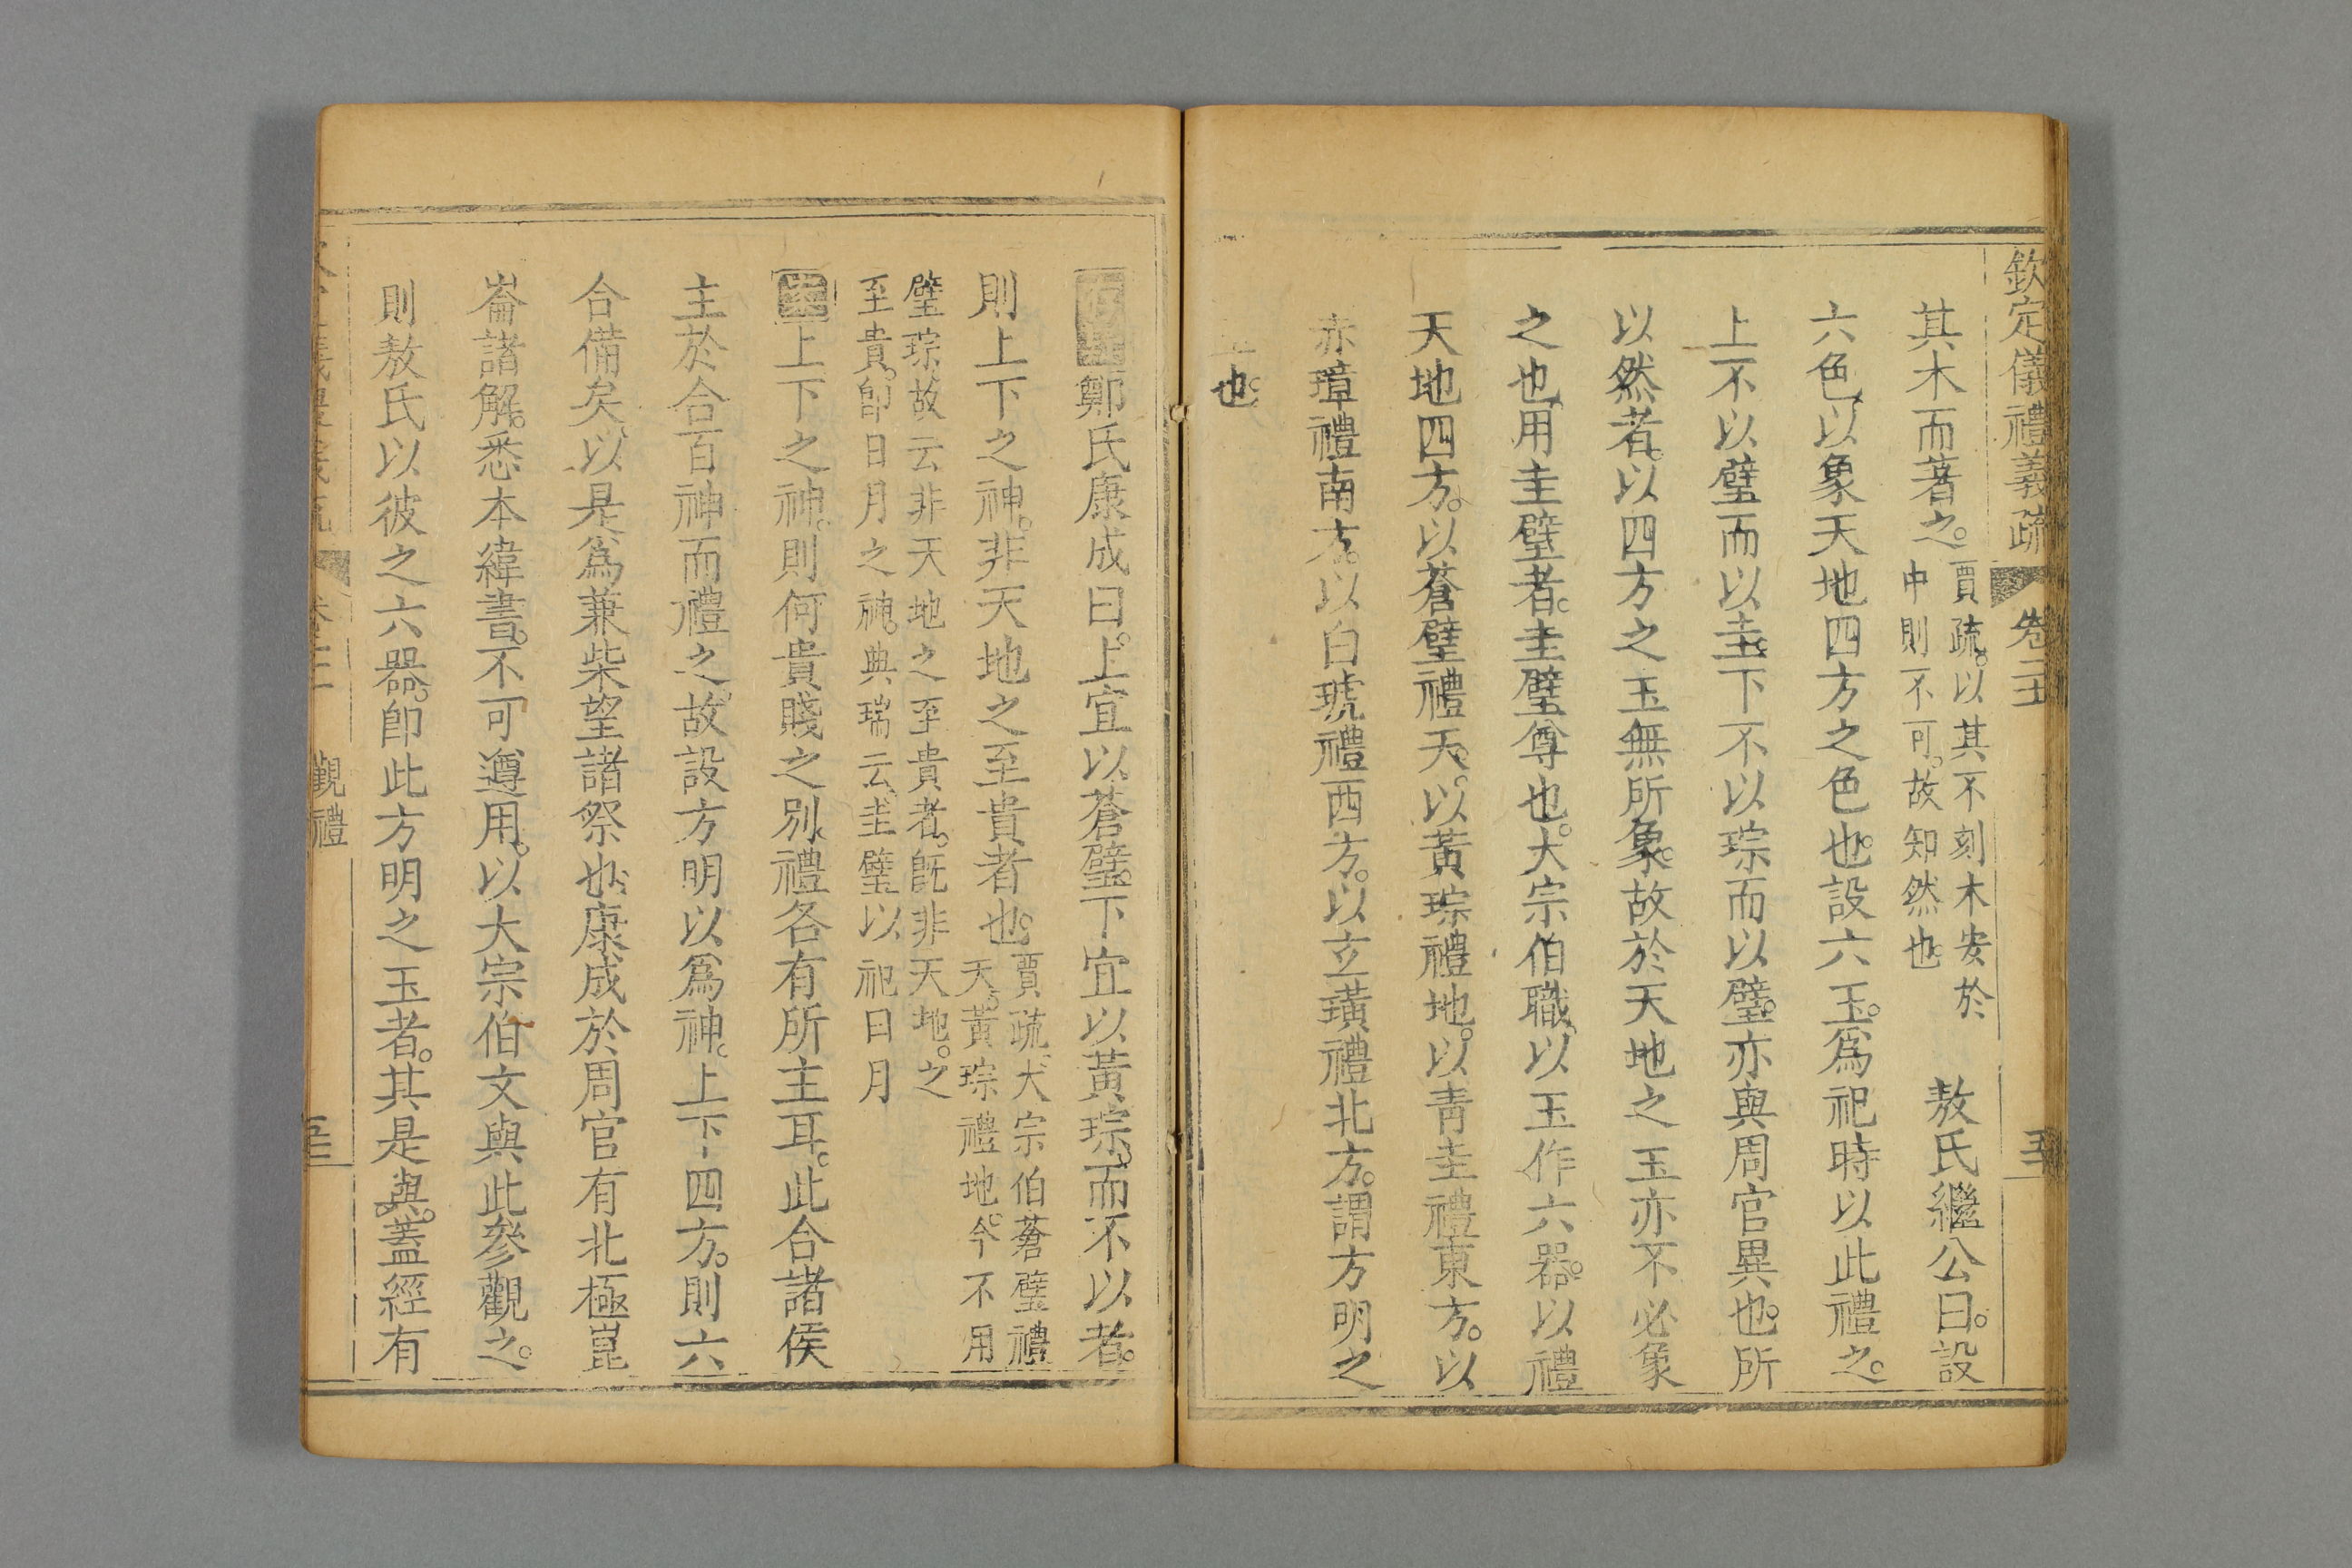 欽定儀禮義疏 卷二十
其木而著之。賈疏。以其不刻木安於
中則不可。故知然也。 敖氏繼公曰。設
六色。以象天地四方之色也。設六玉。爲祀時以此禮之。
上不以璧而以圭。下不以琮而以璧。亦與周官異也。所
以然者。以四方之玉無所象。故於天地之玉亦不必象
之也。用圭璧者。圭璧尊也。大宗伯職。以玉作六器。以禮
天地四方。以蒼璧禮天。以黃琮禮地。以青圭禮東方。以
赤璋禮南方。以白琥禮西方。以玄璜禮北方。謂方明之
玉也。
鄭氏康成曰。上宜以蒼璧。下宜以黃琮。而不以者。
則上下之神。非天地之至貴者也。賈疏。大宗伯蒼璧禮
天。黃琮禮地。今不用
璧琮。故云非天地之至貴者。旣非天地。之
至貴。卽日月之神。典瑞云。圭璧以祀日月
案上下之神。則何貴賤之別。禮各有所主耳。此合諸侯
主於合百神而禮之。故設方明以爲神。上下四方。則六
合備矣。以是爲兼柴望諸祭也。康成於周官有北極崑
崙諸解。悉本緯書。不可遵用。以大宗伯文與此參觀之。
則敖氏以彼之六器。卽此方明之玉者。其是與。蓋經有
覲禮